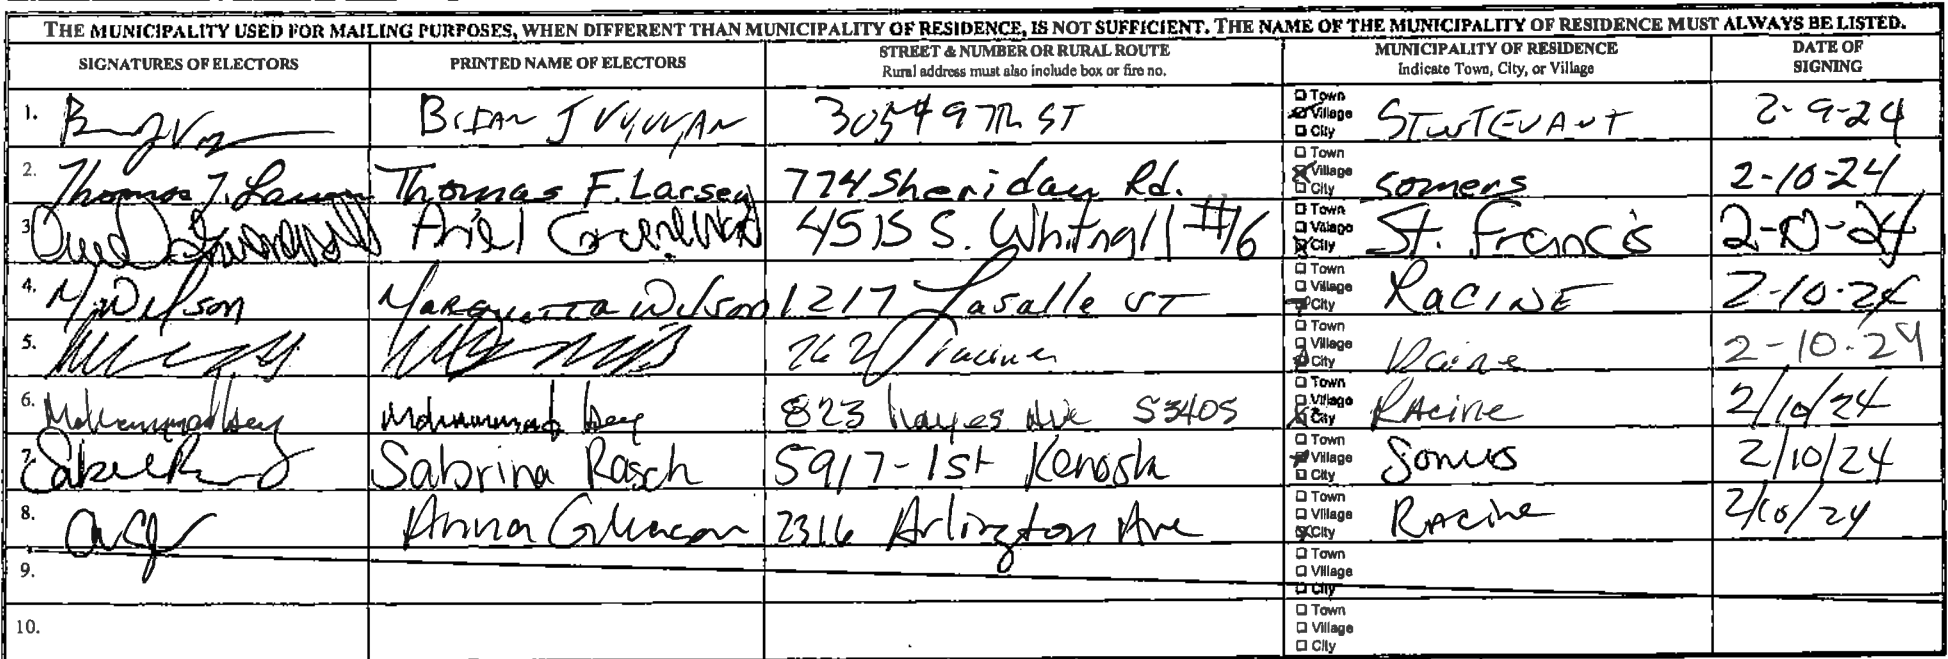 THE MUNICIPALITY USED FOR MAILING PURPOSES, WHEN DIFFERENT THAN MUNICIPALITY OF RESIDENCE, IS NOT SUFFICIENT. THE NAME OF THE MUNICIPALITY OF RESIDENCE MUST ALWAYS BE LISTED.
SIGNATURES OF ELECTORS PRINTED NAME OF ELECTORS STREET & NUMBER OR RURAL ROUTE MUNICIPALITY OF RESIDENCE DATE OF SIGNING
Rural address must also include box or fire no. Indicate Town, City, or Village
1. BRIAN J VYUYAN 3054 97th ST Town Village City STURTEVANT 2-9-24
2. Thomas F. Larsen Thomas F. Larsen 774 Sheridan Rd. Town Village City Somers 2-10-24
3. Ariel 4515 S. Whitnall #16 Town Village City St. Francis 2-10-24
4. M Wilson Wilson 1217 Lasalle ST Town Village City RACINE 2-10-24
5. Town Village City 2-10-24
6. Mohammad 823 hayes Ave 53405 Town Village City RAcine 2/10/24
7. Sabrina Rasch 5917-1st Kenosh Town Village City 2/10/24
8. Anna 2316 Arlington Ave Town Village City RAcine 2/10/24
9. Town Village City
10. Town Village City